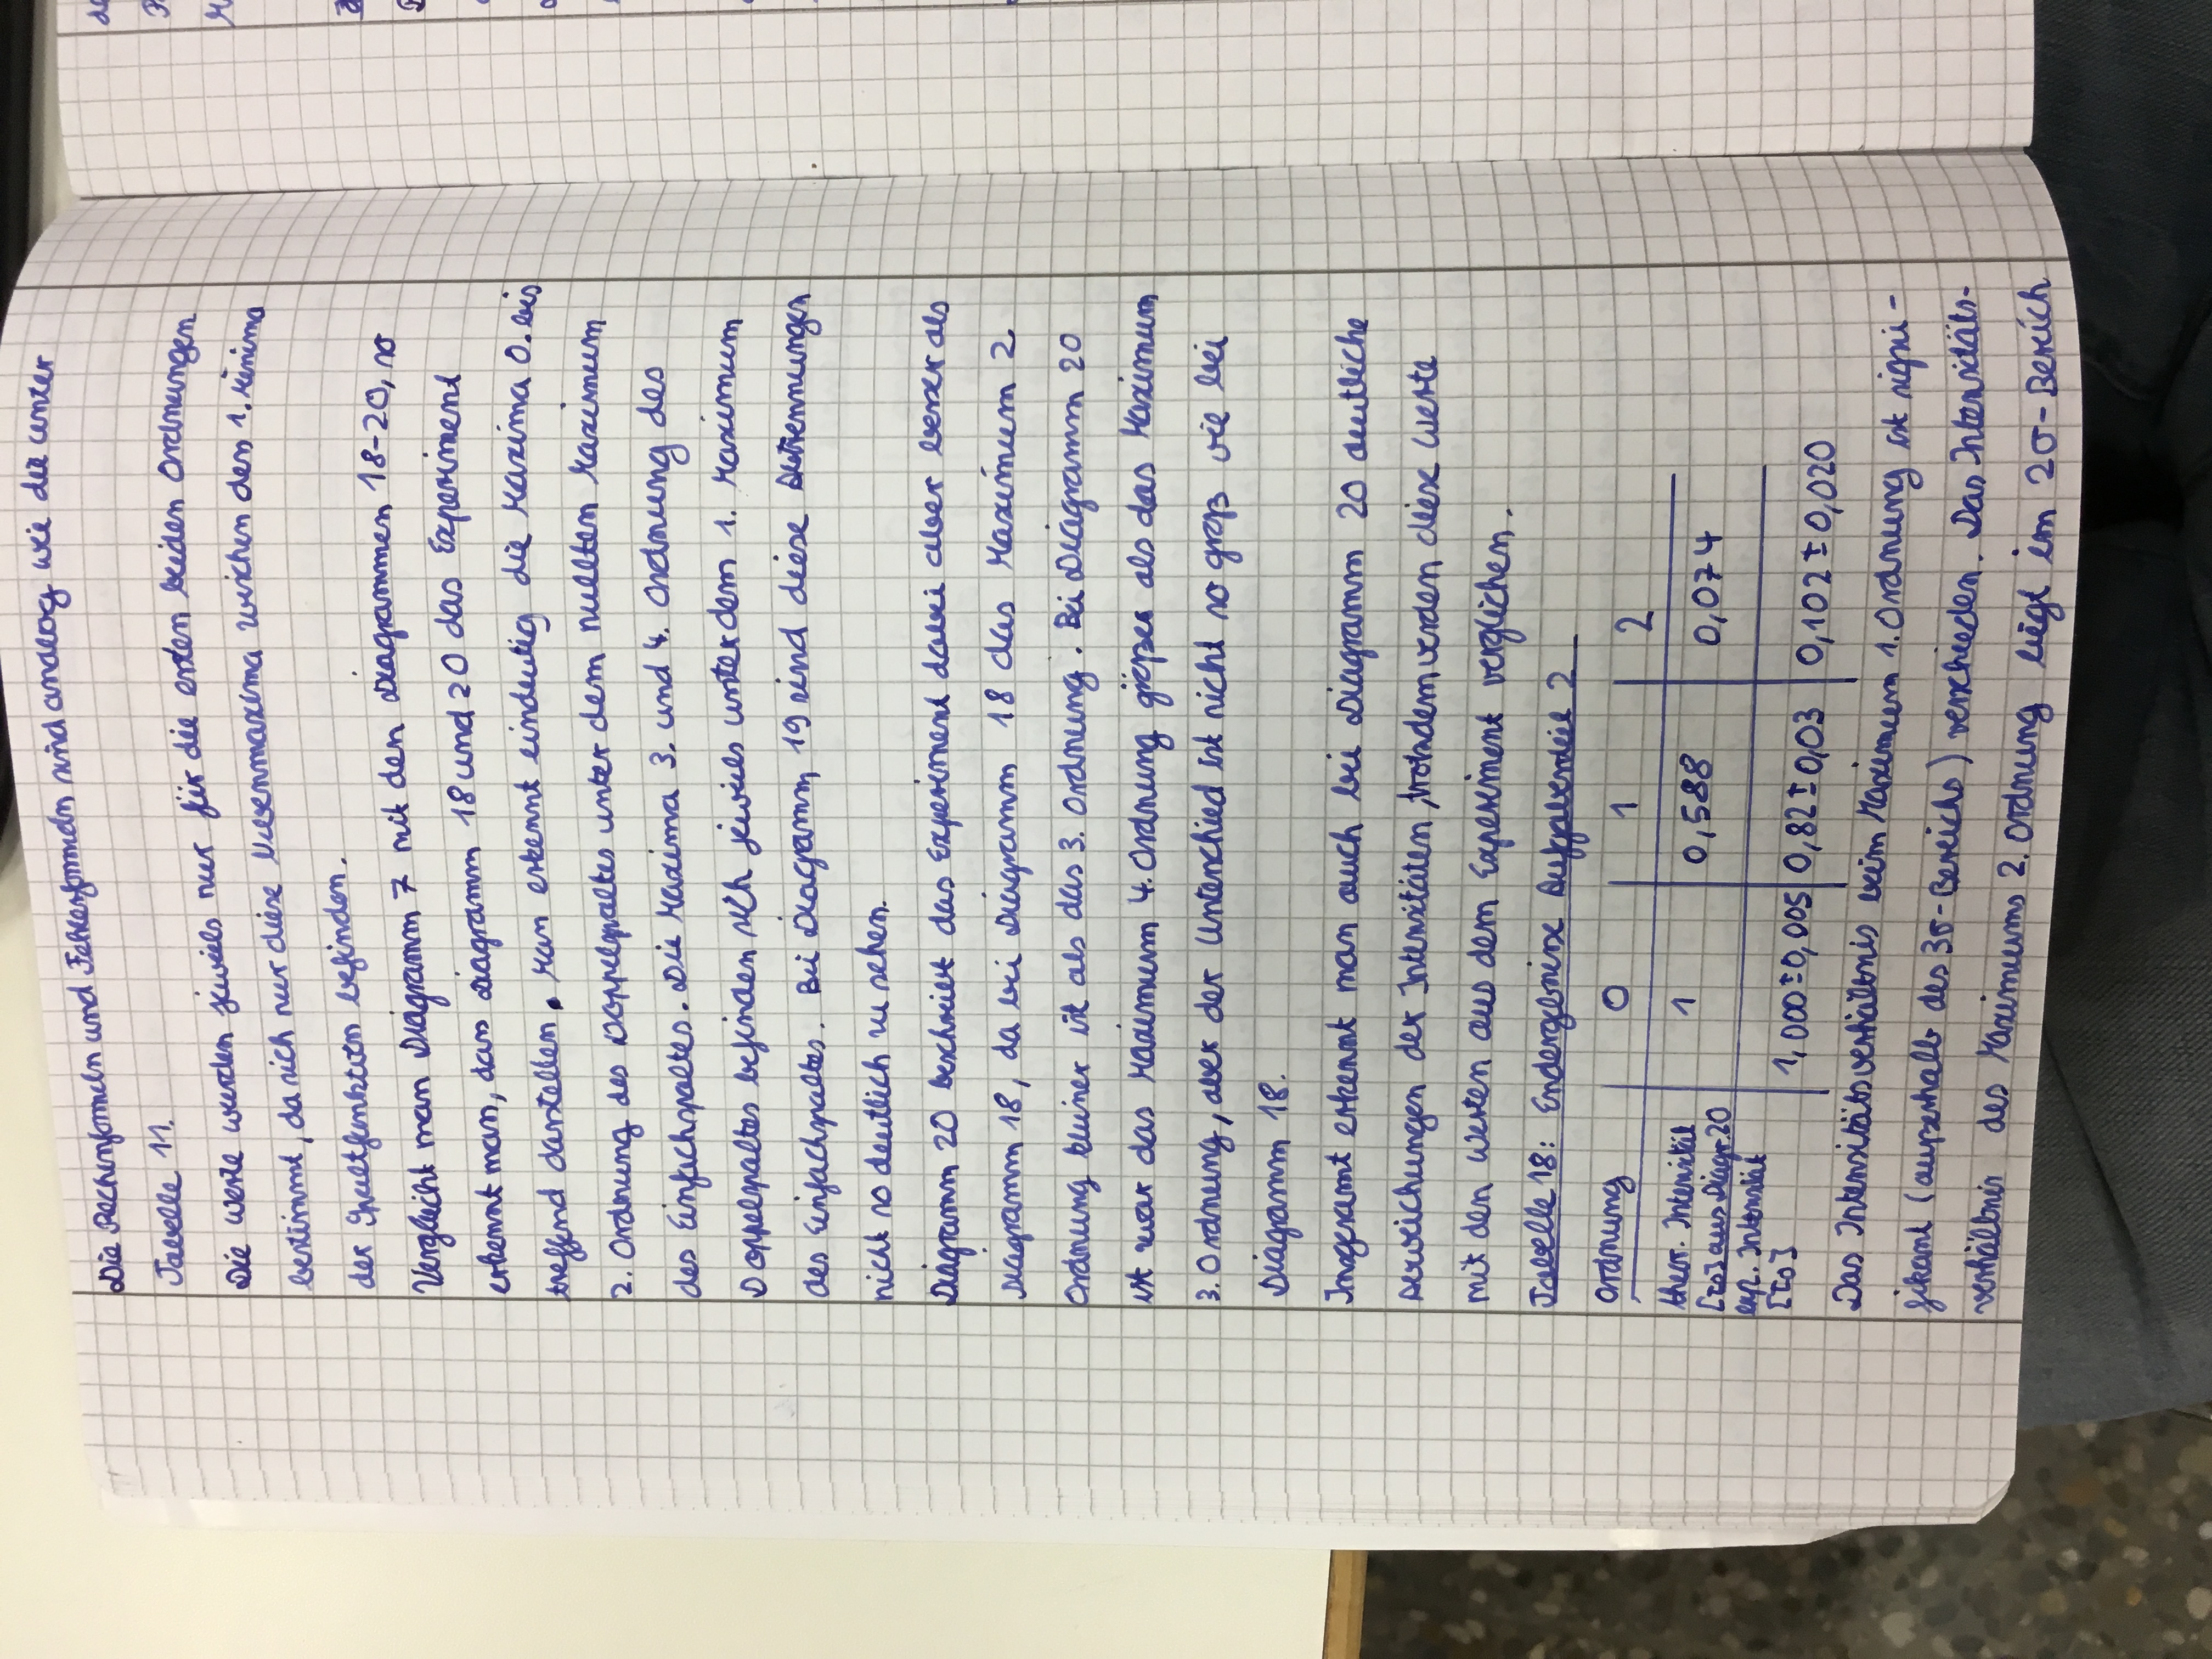 Die Rechenformeln und Fehlerformeln sind analog wie die unter
Tabelle 11.
Die Werte wurden jeweils nur für die ersten beiden Ordnungen
bestimmt, da sich nur diese Nebenmaxima zwischen den 1. Minima
der Spaltfunktion befinden.
Vergleicht man Diagramm 7 mit den Diagrammen 18-20, so
erkennt man, dass Diagramm 18 und 20 das Experiment
treffend darstellen. Man erkennt eindeutig die Maxima 0. bis
2. Ordnung des Doppelspaltes unter dem nullten Maximum
des Einfachspaltes. Die Maxima 3. und 4. Ordnung des
Doppelspaltes befinden sich jeweils unter dem 1. Maximum
des Einfachspaltes. Bei Diagramm 19 sind diese Abtrennungen
nicht so deutlich zu sehen.
Diagramm 20 beschreibt das Experiment dabei aber besser als
Diagramm 18, da bei Diagramm 18 das Maximum 2.
Ordnung kleiner ist als das 3. Ordnung. Bei Diagramm 20
ist zwar das Maximum 4. Ordnung größer als das Maximum
3. Ordnung, aber der Unterschied ist nicht so groß wie bei
Diagramm 18.
Insgesamt erkennt man auch bei Diagramm 20 deutliche
Abweichungen der Intensitäten, trotzdem werden diese Werte
mit den Werten aus dem Experiment verglichen.
Tabelle 18: Endergebnisse Aufgabenteil 2
Ordnung 0 1 2
theor. Intensität
[I0] aus Diagr. 20 1 0,588 0,074
exp. Intensität
[I0] 1,000 ± 0,005 0,82 ± 0,03 0,102 ± 0,020
Das Intensitätsverhältnis beim Maximum 1. Ordnung ist signi-
fikant (außerhalb des 3σ-Bereichs) verschieden. Das Intensitäts-
verhältnis des Maximums 2. Ordnung liegt im 2σ-Bereich